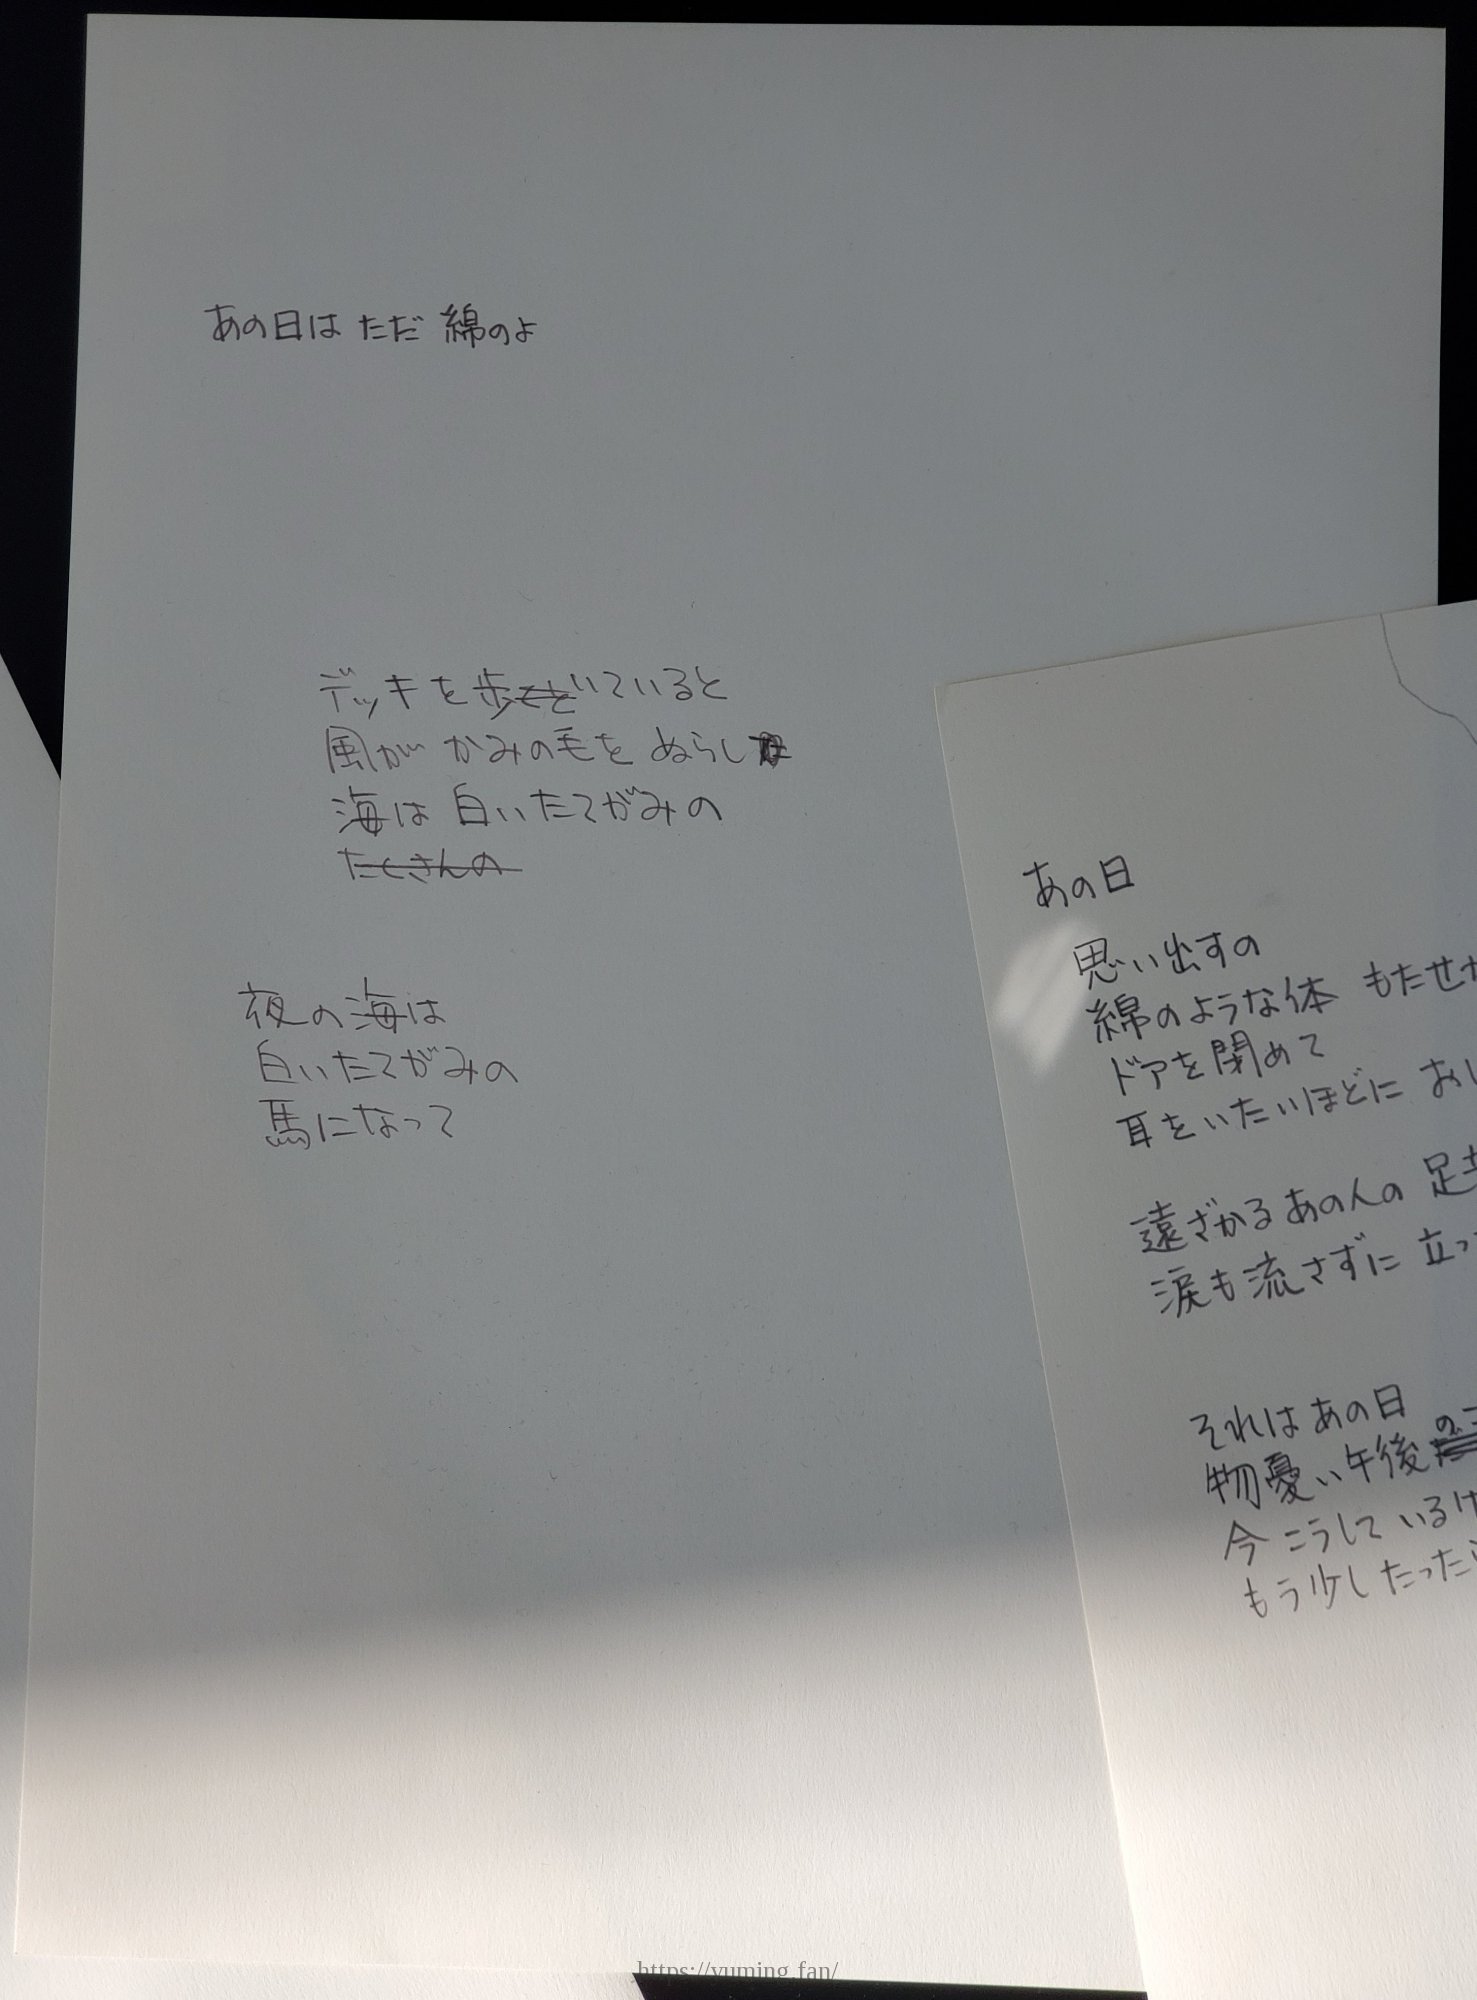 あの日は ただ 綿のよ
デッキを歩くといていると
風が かみの毛を ぬらし
海は 白いたてがみの
たくさんの
夜の海は
白いたてがみの
馬になって
あの日
思い出すの
綿のような体 もたせか
ドアを閉めて
耳をいたいほどに おし
遠ざかるあの人の 足
涙も流さずに 立っ
それはあの日
物憂い午後の
今 こうして いるけ
もう少し たった
https://yuming.fan/